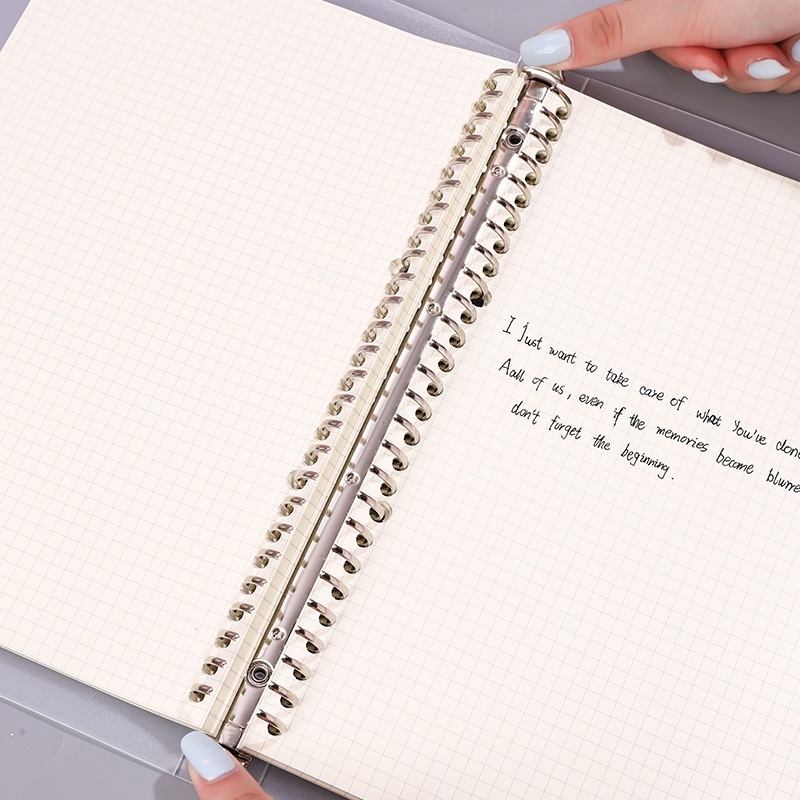 I Just want to take care of what You've done
Aall of us, even if the memories become blurre
don't forget the beginning.